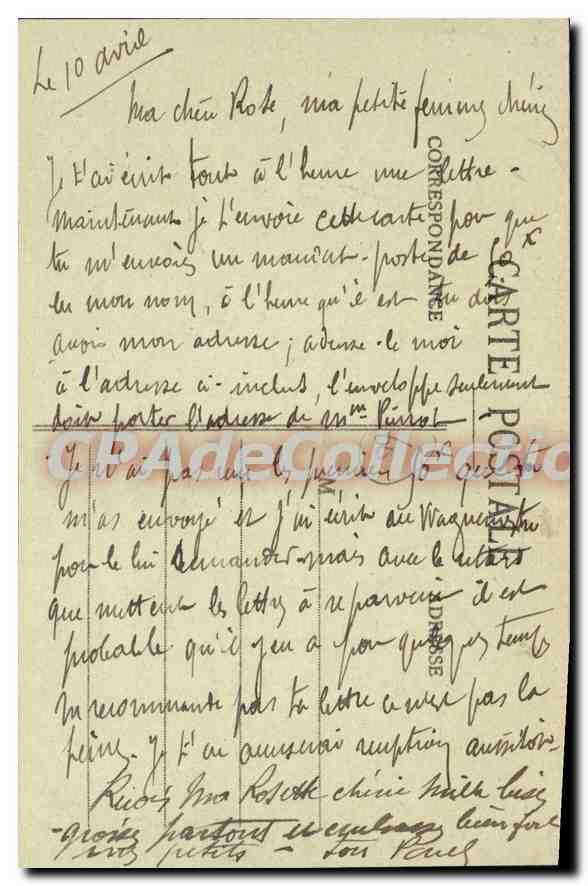 Le 10 avril
Ma chère Rose, ma petite femme chérie
Je t'ai écrit tout à l'heure une lettre -
maintenant je t'envoie cette carte pour que
tu m'envoies un mandat-poste de
en mon nom, à l'heure qu'il est tu dois
avoir mon adresse ; adresse-le moi
à l'adresse ci-inclus, l'enveloppe seulement
doit porter l'adresse de Mme
Je n'ai pas reçu les premiers que tu
m'as envoyé et j'ai écrit au Waguemestre
pour le lui demander mais avec le retard
que mettent les lettres à reparvenir il est
probable qu'il y en a pour quelques temps
recommande pas ta lettre ce n'est pas la
peine. Je t'en accuserai réception aussitôt -
Reçois ma Rosette chérie mille bises
grosses partout et bien fort
petits - ton Paul
CORRESPONDANCE
CARTE POSTALE
ADRESSE
M
CPAdeCollection